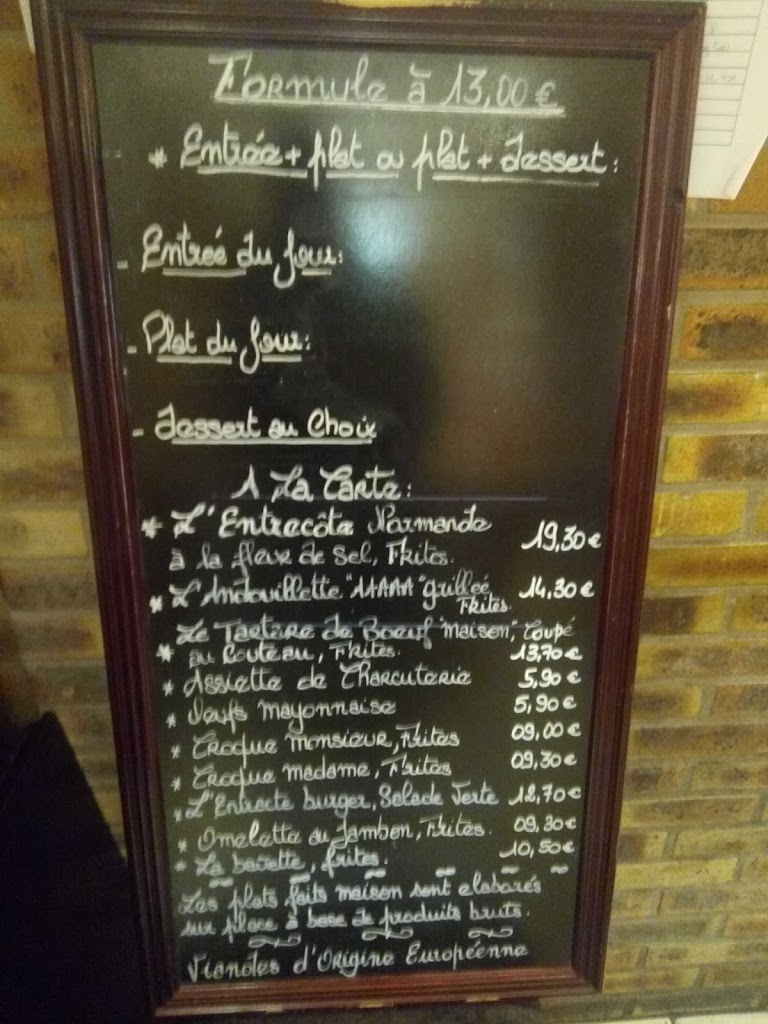 Formule à 13,00 €
* Entrée + plat ou plat + dessert :
- Entrée du Jour :
- Plat du Jour :
- Dessert au Choix
A La Carte :
* L'Entrecôte Normande 19,30 €
à la fleur de Sel, Frites.
* L'Andouillette "AAAAA" grillée 14,30 €
Frites.
Le Tartare de Boeuf "maison", Coupé
* au Couteau, Frites. 13,70 €
* Assiette de Charcuterie 5,90 €
* Oeufs mayonnaise 5,90 €
* Croque monsieur, Frites 09,00 €
* Croque madame, Frites 09,30 €
* L'Entracte burger, Salade Verte 12,70 €
* Omelette au Jambon, Frites. 09,30 €
* La bavette, frites. 10,50 €
Les plats faits maison sont elaborés
sur place à base de produits bruts.
Viandes d'Origine Européenne